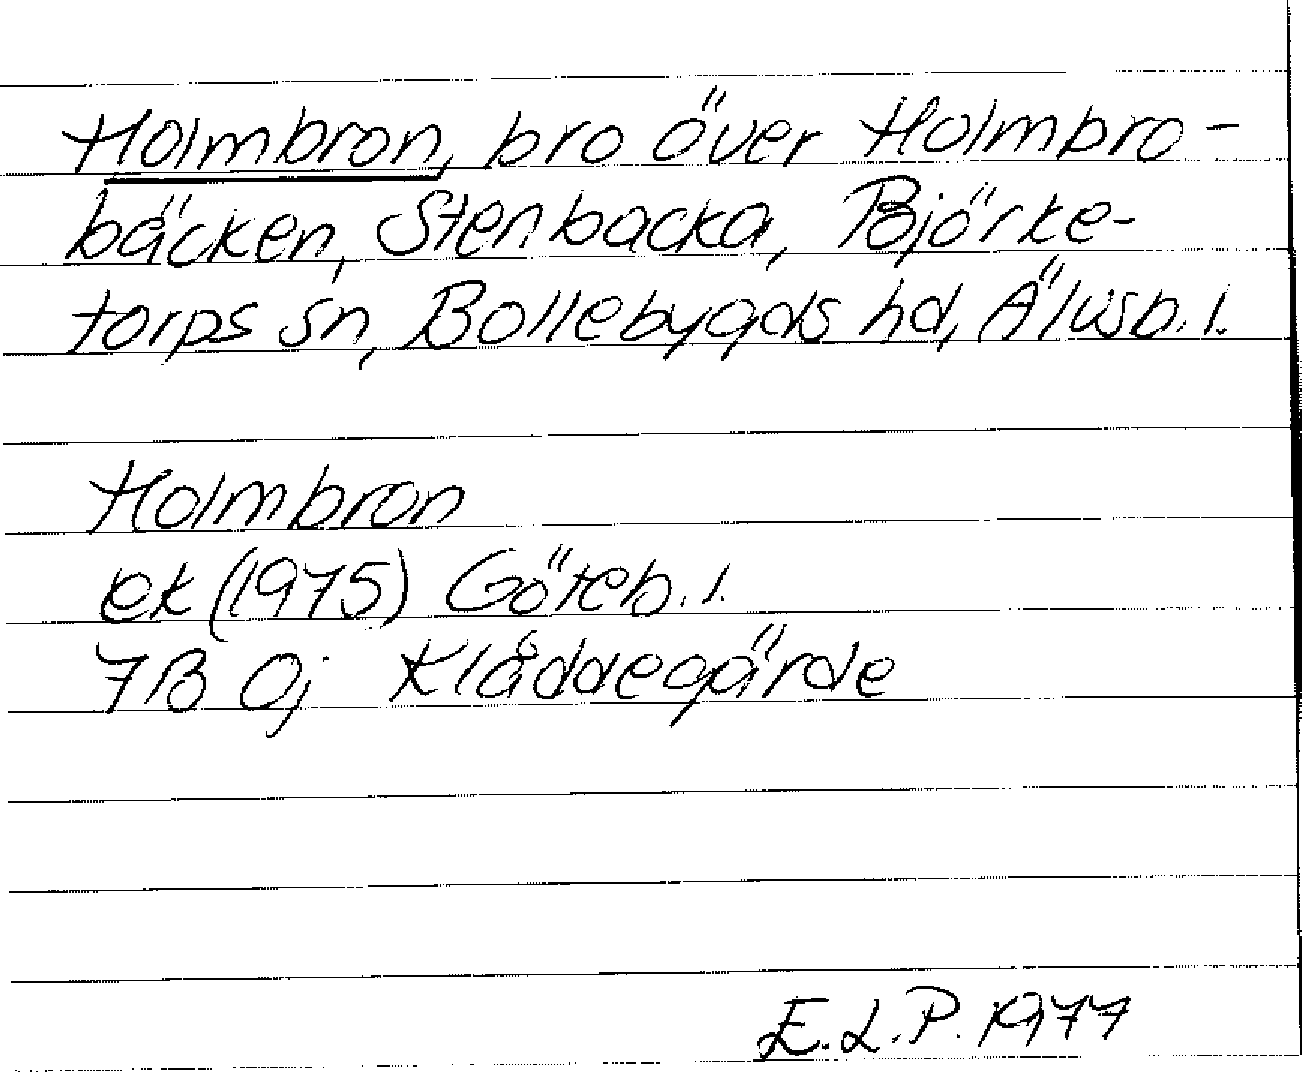 Holmbron, bro över Holmbro-
bäcken, Stenbacka, Björke-
torps sn, Bollebygds hd, Älvsb. l.
Holmbron
ek (1975) Göteb. l.
7B 0j Klåddegärde
E.L.P. 1977